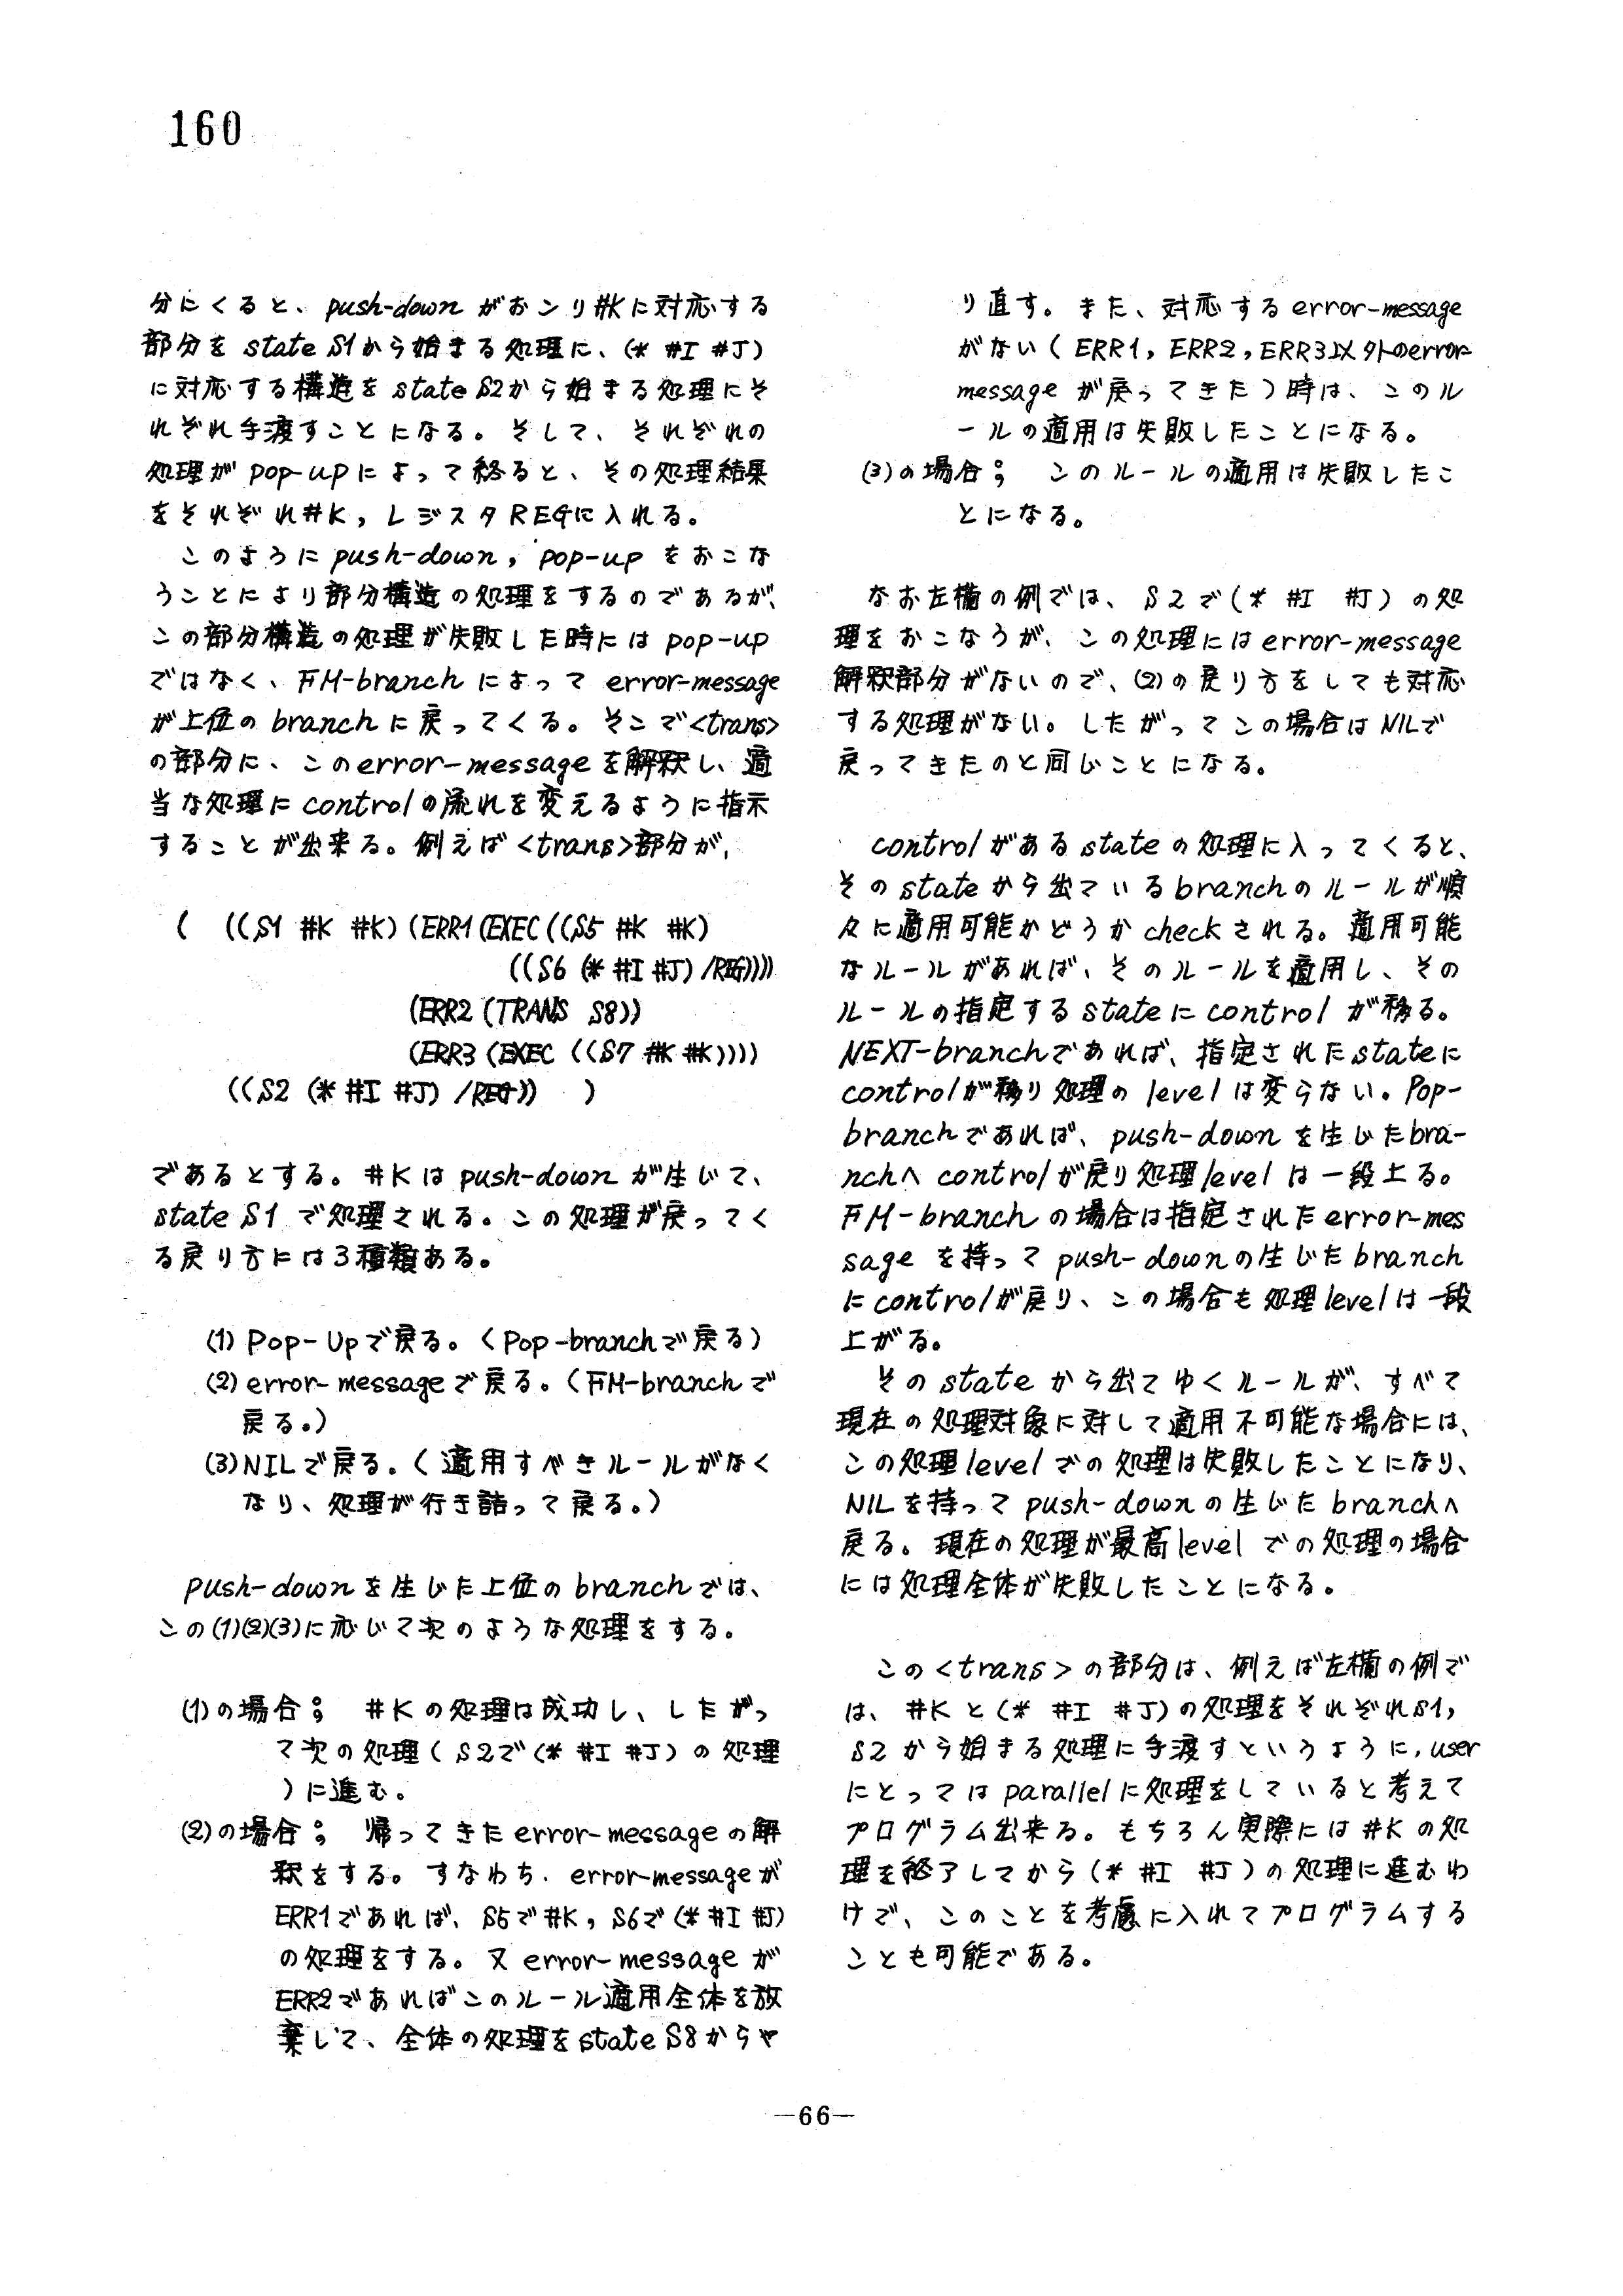 160
分にくると、push-down がおこり #K に対応する
部分を state S1 から始まる処理に、(* #I #J)
に対応する構造を state S2 から始まる処理にそ
れぞれ手渡すことになる。そして、それぞれの
処理が pop-up によって終ると、その処理結果
をそれぞれ #K, レジスタ REG に入れる。
このように push-down, pop-up をおこな
うことにより部分構造の処理をするのであるが、
この部分構造の処理が失敗した時には pop-up
ではなく、FM-branch によって error-message
が上位の branch に戻ってくる。そこで <trans>
の部分に、この error-message を解釈し、適
当な処理に control の流れを変えるように指示
することが出来る。例えば <trans> 部分が,
( ((S1 #K #K) (ERR1 (EXEC ((S5 #K #K)
((S6 (* #I #J) /REG))))
(ERR2 (TRANS S8))
(ERR3 (EXEC ((S7 #K #K))))
((S2 (* #I #J) /REG)) )
であるとする。#K は push-down が生じて、
state S1 で処理される。この処理が戻ってく
る戻り方には3種類ある。
(1) Pop-Up で戻る。(Pop-branch で戻る)
(2) error-message で戻る。(FM-branch で
戻る。)
(3) NIL で戻る。(適用すべきルールがなく
なり、処理が行き詰って戻る。)
push-down を生じた上位の branch では、
この(1)(2)(3)に応じて次のような処理をする。
(1)の場合; #K の処理は成功し、したがっ
て次の処理 (S2 で (* #I #J) の処理
) に進む。
(2)の場合; 帰ってきた error-message の解
釈をする。すなわち. error-message が
ERR1 であれば、S5 で #K, S6 で (* #I #J)
の処理をする。又 error-message が
ERR2 であればこのルール適用全体を放
棄して、全体の処理を state S8 からや
り直す。また、対応する error-message
がない (ERR1, ERR2, ERR3 以外の error-
message が戻ってきた) 時は、このル
ールの適用は失敗したことになる。
(3)の場合; このルールの適用は失敗したこ
とになる。
なお左欄の例では、S2 で (* #I #J) の処
理をおこなうが、この処理には error-message
解釈部分がないので、(2)の戻り方をしても対応
する処理がない。したがってこの場合は NIL で
戻ってきたのと同じことになる。
control がある state の処理に入ってくると、
その state から出ている branch のルールが順
々に適用可能かどうか check される。適用可能
なルールがあれば、そのルールを適用し、その
ルールの指定する state に control が移る。
NEXT-branch であれば、指定された state に
control が移り処理の level は変らない。Pop-
branch であれば、push-down を生じた bra-
nch へ control が戻り処理 level は一段上る。
FM-branch の場合は指定された error-mes
sage を持って push-down の生じた branch
に control が戻り、この場合も処理 level は一段
上がる。
その state から出てゆくルールが、すべて
現在の処理対象に対して適用不可能な場合には、
この処理 level での処理は失敗したことになり、
NIL を持って push-down の生じた branch へ
戻る。現在の処理が最高 level での処理の場合
には処理全体が失敗したことになる。
この <trans> の部分は、例えば左欄の例で
は、#K と (* #I #J) の処理をそれぞれ S1,
S2 から始まる処理に手渡すというように, user
にとっては parallel に処理をしていると考えて
プログラム出来る。もちろん実際には #K の処
理を終了してから (* #I #J) の処理に進むわ
けで、このことを考慮に入れてプログラムする
ことも可能である。
—66—